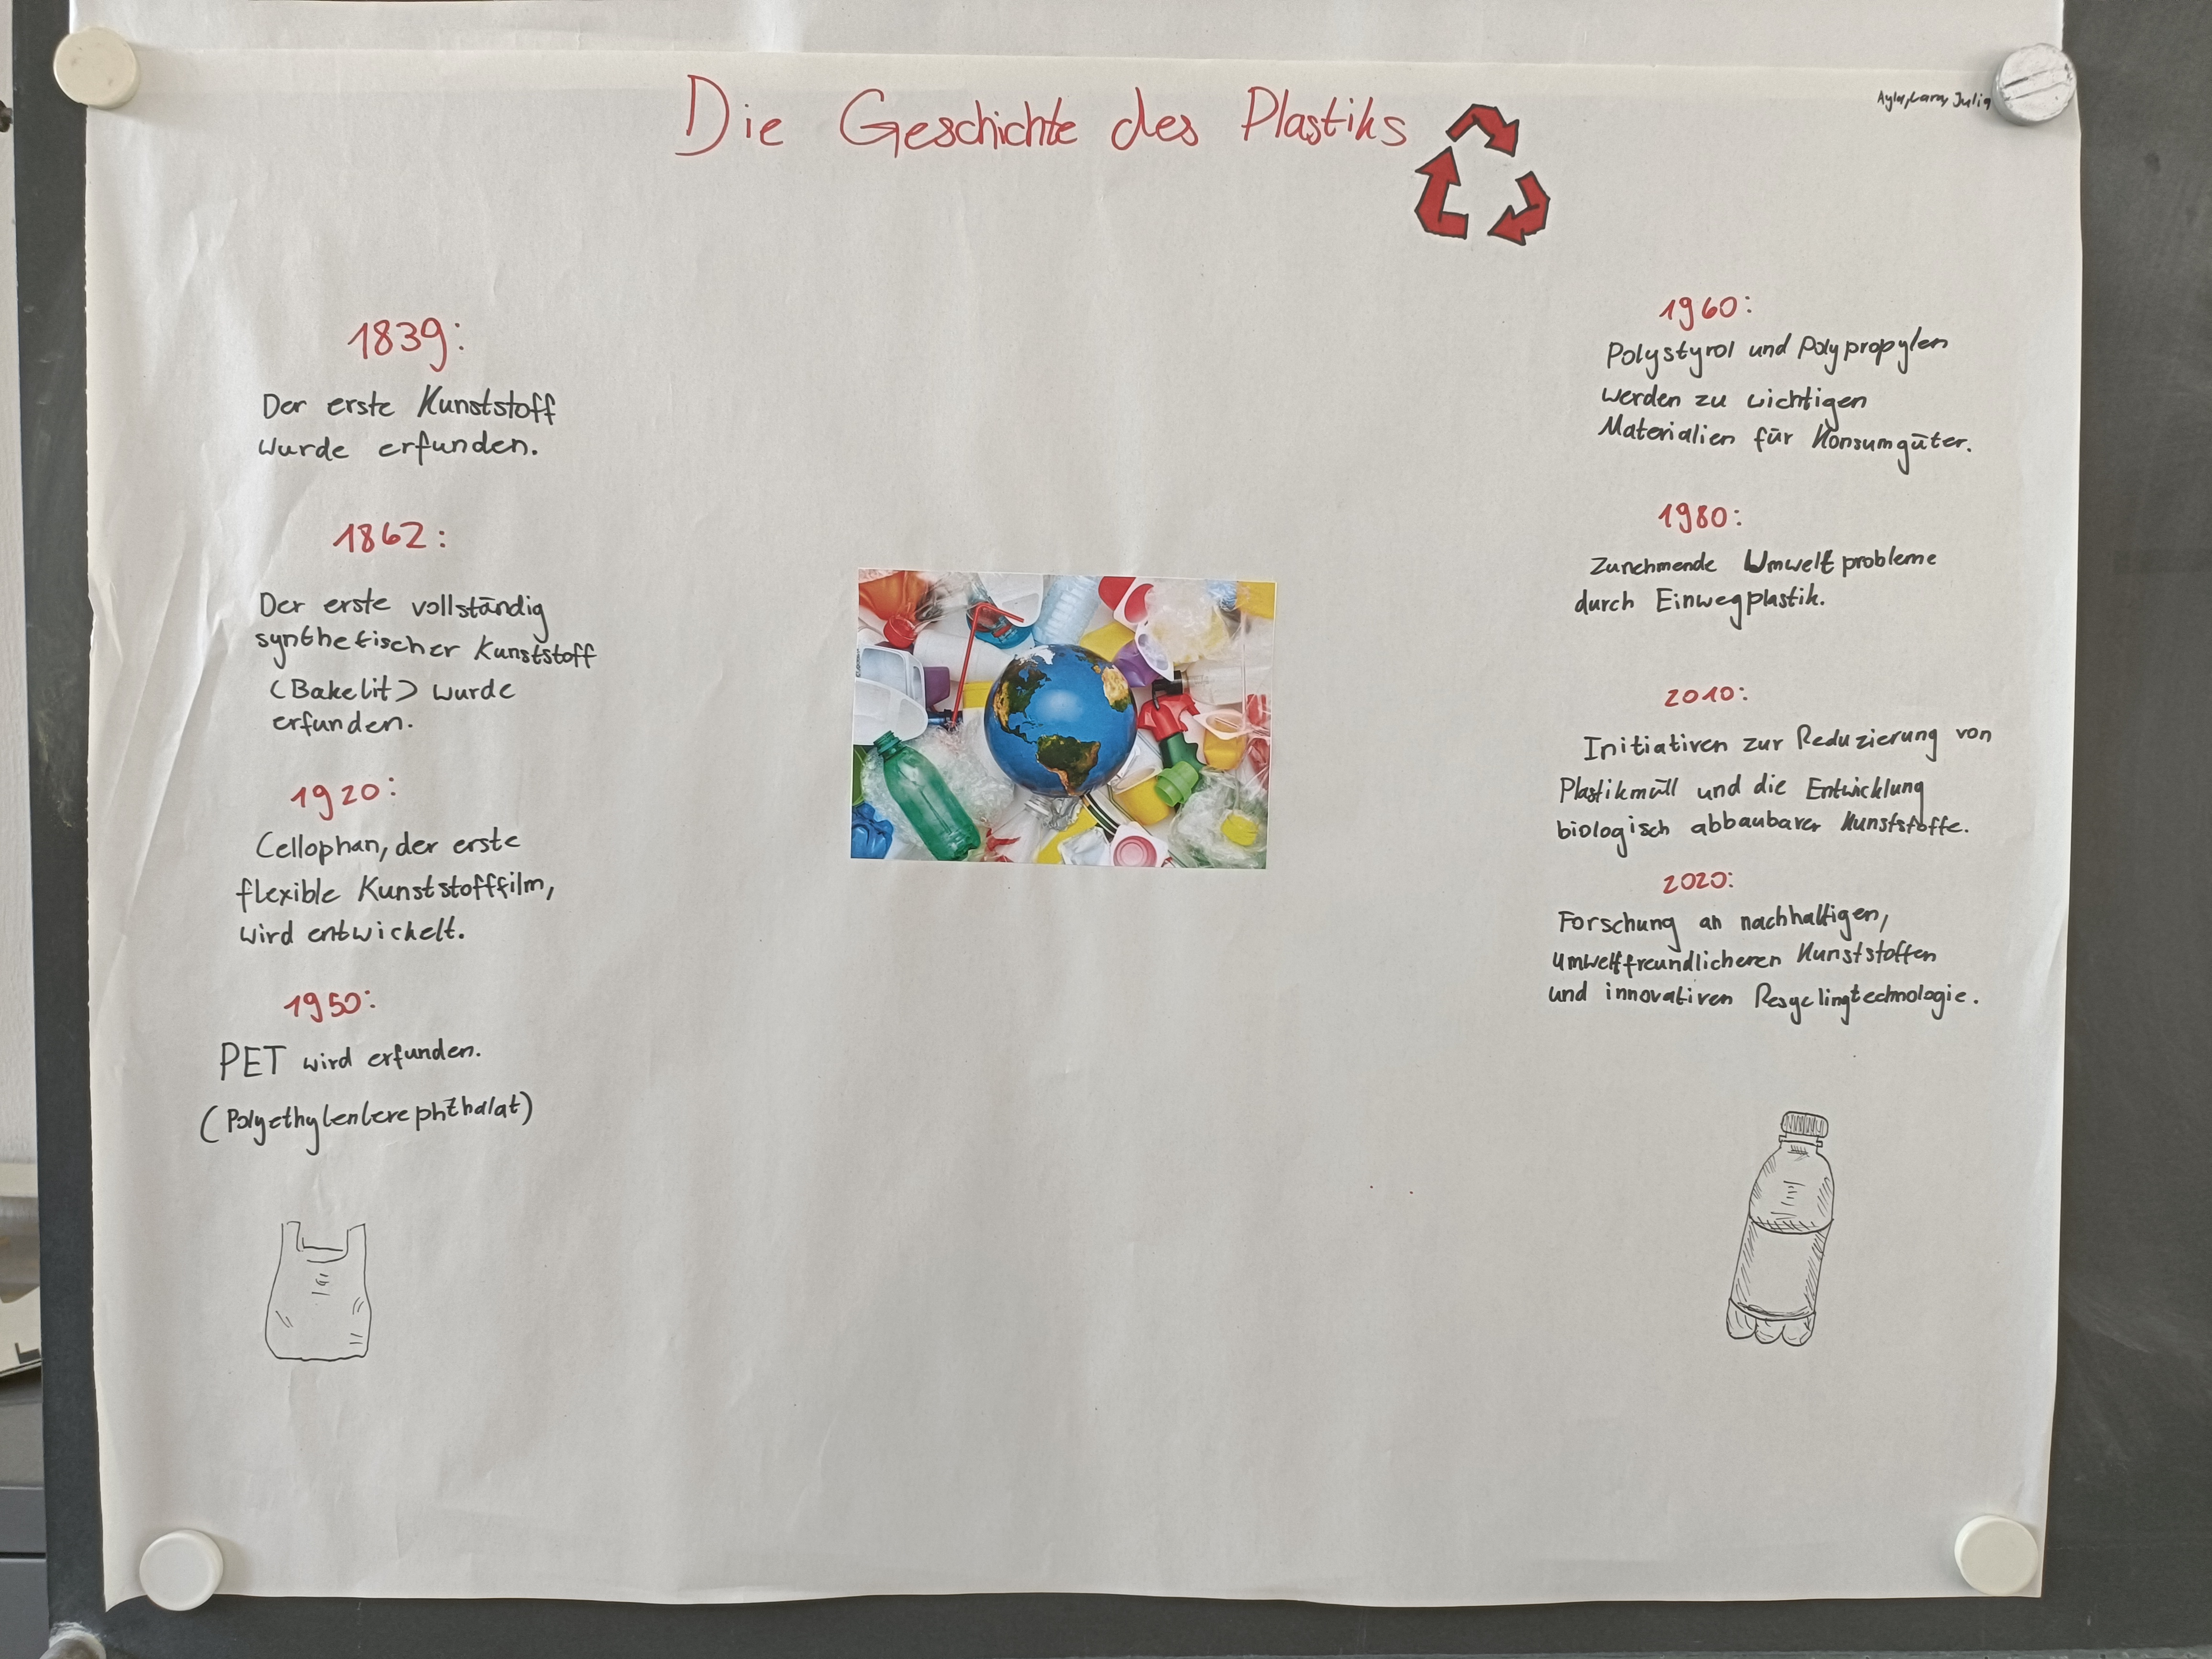 Die Geschichte des Plastiks
Ayla, Lara, Julia
1839:
Der erste Kunststoff
wurde erfunden.
1862:
Der erste vollständig
synthetischer Kunststoff
(Bakelit) wurde
erfunden.
1920:
Cellophan, der erste
flexible Kunststofffilm,
wird entwickelt.
1950:
PET wird erfunden.
(Polyethylenterephthalat)
1960:
Polystyrol und Polypropylen
werden zu wichtigen
Materialien für Konsumgüter.
1980:
Zunehmende Umweltprobleme
durch Einwegplastik.
2010:
Initiativen zur Reduzierung von
Plastikmüll und die Entwicklung
biologisch abbaubarer Kunststoffe.
2020:
Forschung an nachhaltigen,
umweltfreundlicheren Kunststoffen
und innovativen Resycelingtechnologie.